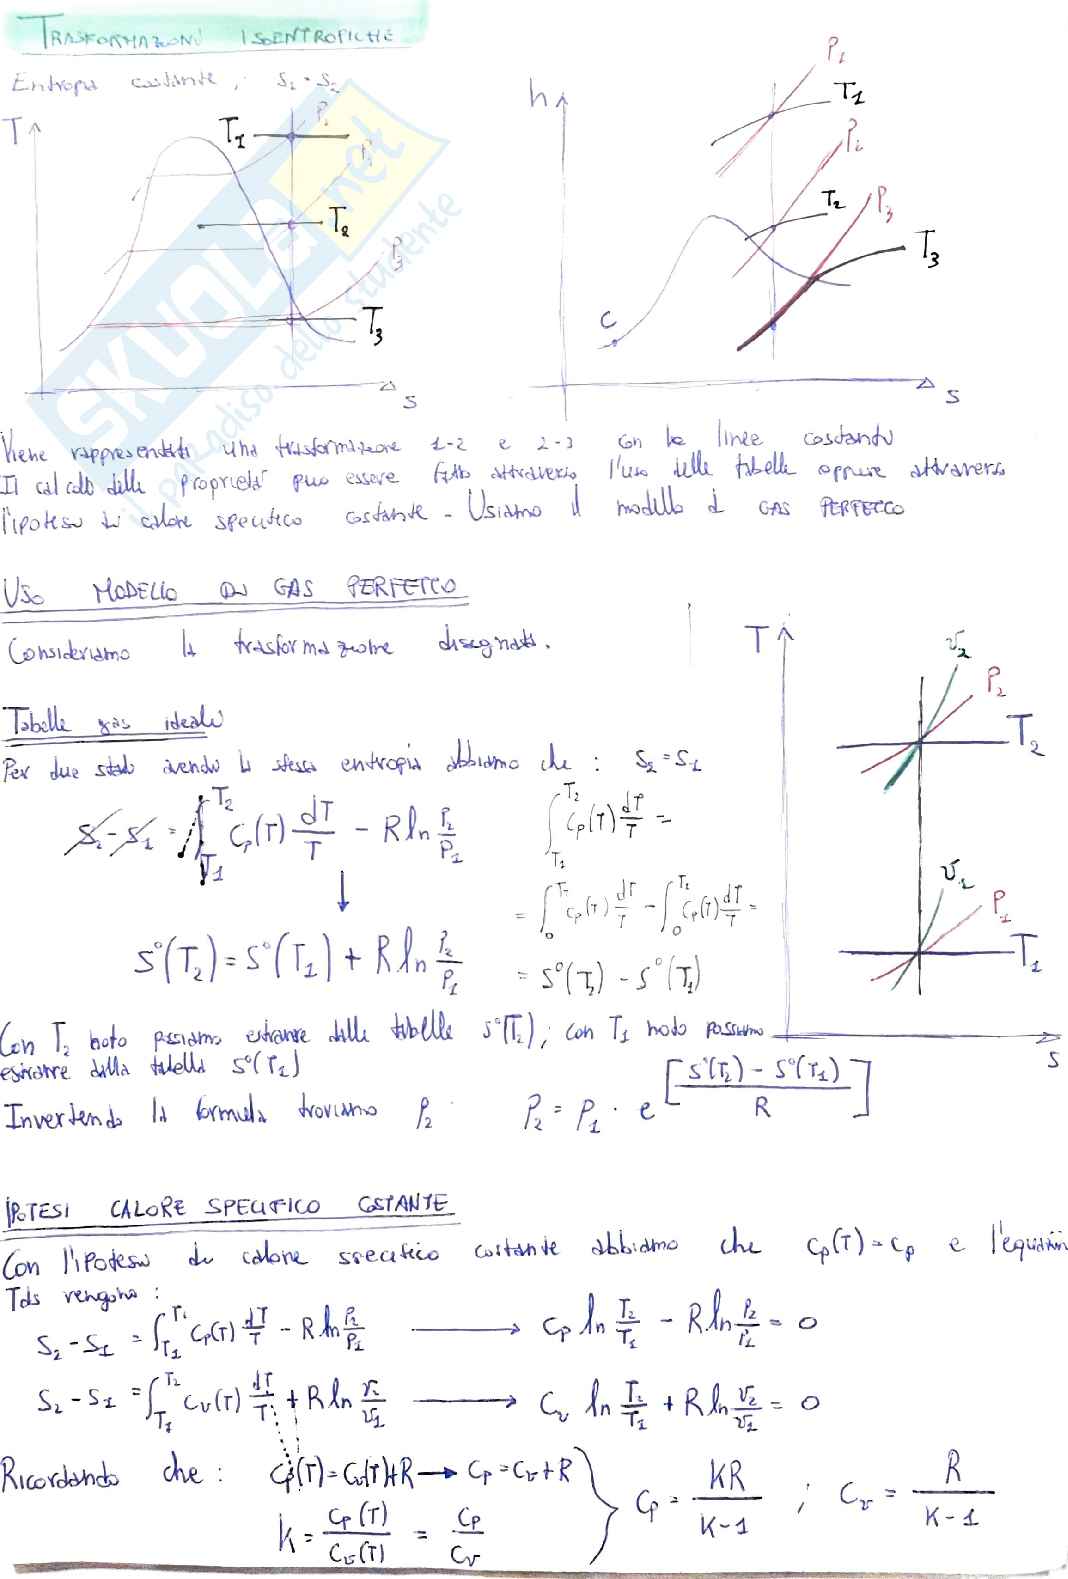 TRASFORMAZIONI ISOENTROPICHE
Entropia costante ; S₁ = S₂
T
T₁
P₁
T₂
P₂
P₃
T₃
s
h
P₁
T₁
P₂
T₂
P₃
T₃
C
s
SKUOLA.net
il paradiso dello studente
Viene rappresentata una trasformazione 1-2 e 2-3 con le linee costanti
Il calcolo delle proprietà può essere fatto attraverso l'uso delle tabelle oppure attraverso
l'ipotesi di calore specifico costante - Usiamo il modello di GAS PERFETTO
USO MODELLO DI GAS PERFETTO
Consideriamo la trasformazione disegnata.
T
v₂
P₂
T₂
v₁
P₁
T₁
s
Tabelle gas ideali
Per due stati aventi la stessa entropia abbiamo che : S₂ = S₁
S₂ - S₁ = ∫_T₁^T₂ Cp(T) dT/T - R ln P₂/P₁
∫_T₁^T₂ Cp(T) dT/T =
= ∫_0^T₂ Cp(T) dT/T - ∫_0^T₁ Cp(T) dT/T =
= S°(T₂) - S°(T₁)
S°(T₂) = S°(T₁) + R ln P₂/P₁
Con T₂ noto possiamo estrarre dalle tabelle S°(T₂) ; con T₁ noto possiamo
estrarre dalla tabella S°(T₁)
Invertendo la formula troviamo P₂ . P₂ = P₁ · e^[(S°(T₂) - S°(T₁))/R]
IPOTESI CALORE SPECIFICO COSTANTE
Con l'ipotesi di calore specifico costante abbiamo che Cp(T) = Cp e l'equazion
Tds vengono :
S₂ - S₁ = ∫_T₁^T₂ Cp(T) dT/T - R ln P₂/P₁ → Cp ln T₂/T₁ - R ln P₂/P₁ = 0
S₂ - S₁ = ∫_T₁^T₂ Cv(T) dT/T + R ln v₂/v₁ → Cv ln T₂/T₁ + R ln v₂/v₁ = 0
Ricordando che : Cp(T) = Cv(T) + R → Cp = Cv + R
K = Cp(T)/Cv(T) = Cp/Cv
} Cp = KR/K-1 ; Cv = R/K-1